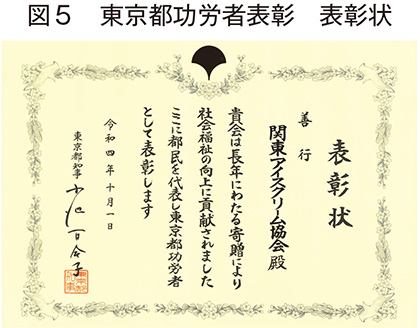 図5　東京都功労者表彰　表彰状
表彰状
善行
関東アイスクリーム協会殿
貴会は長年にわたる寄贈により
社会福祉の向上に貢献されました
ここに都民を代表し東京都功労者
として表彰します
令和四年十月一日
東京都知事 小池百合子